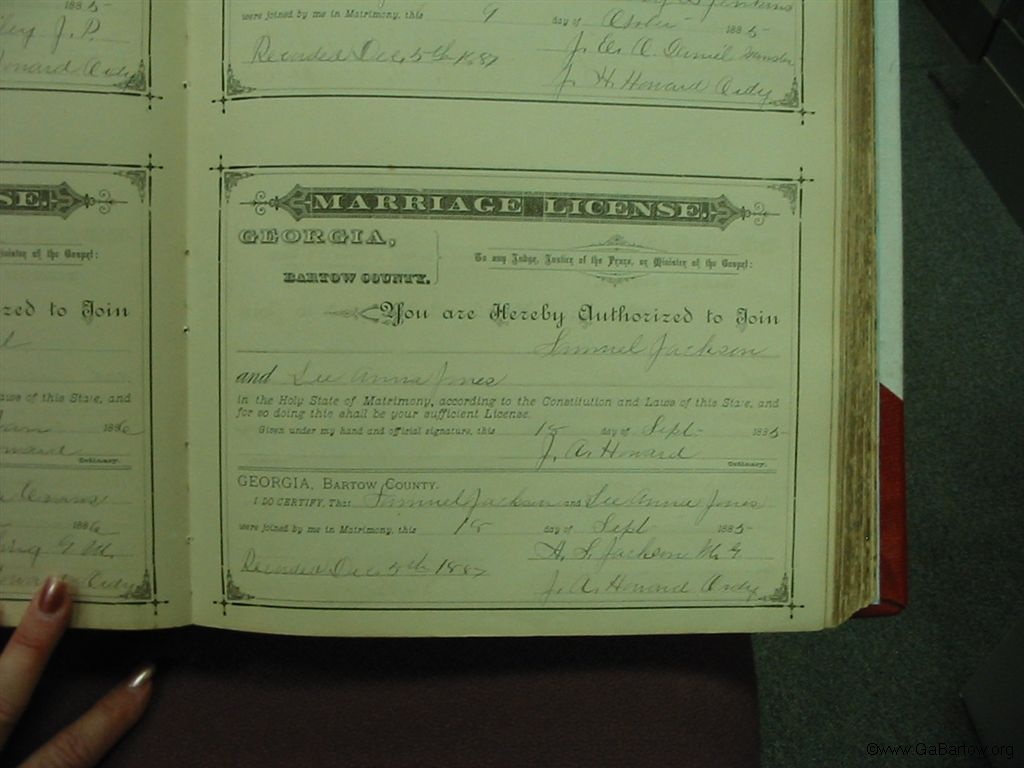 1885
were joined by me in Matrimony, this 9 day of 1885
Recorded Dec 5th 1887
J. H. Howard Ordy
J. P.
Howard Ordy
SE.
Minister of the Gospel:
zed to Join
aws of this State, and
1886
Ordinary.
1886
G. M.
Ordy
MARRIAGE LICENSE.
GEORGIA,
BARTOW COUNTY.
To any Judge, Justice of the Peace, or Minister of the Gospel:
You are Hereby Authorized to Join
Samuel Jackson
and Lee Anna Jones
in the Holy State of Matrimony, according to the Constitution and Laws of this State, and
for so doing this shall be your sufficient License.
Given under my hand and official signature, this 18 day of Sept 1885
J. A. Howard Ordinary.
GEORGIA, BARTOW COUNTY.
I DO CERTIFY, That Samuel Jackson and Lee Anna Jones
were joined by me in Matrimony, this 18 day of Sept 1885
Jackson M. G
Recorded Dec 5th 1887
J. A. Howard Ordy
©www.GaBartow.org